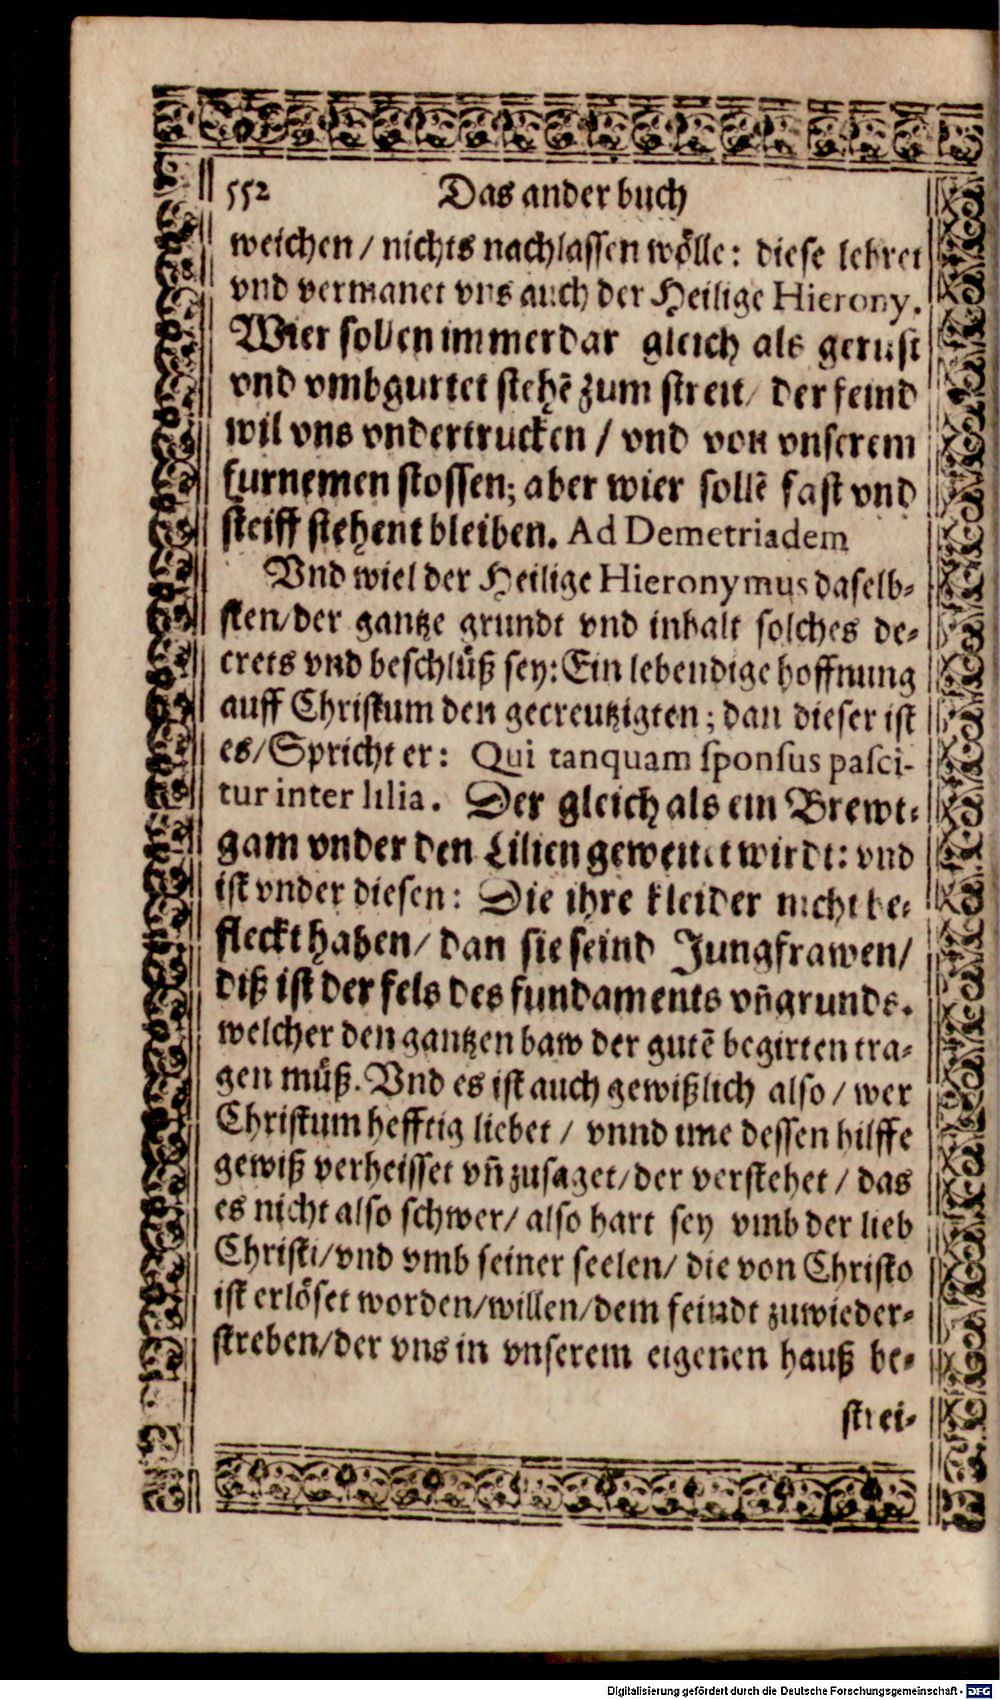 552 Das ander buch
weichen / nichts nachlassen wölle: diese lehret
vnd vermanet vns auch der Heilige Hierony.
Wier sollen immerdar gleich als gerust
vnd vmbgurtet stehẽ zum streit / der feind
wil vns vndertrucken / vnd von vnserem
furnemen stossen; aber wier sollẽ fast vnd
steiff stehent bleiben. Ad Demetriadem
Vnd wiel der Heilige Hieronymus daselb-
sten/der gantze grundt vnd inhalt solches de-
crets vnd beschlüß sey: Ein lebendige hoffnung
auff Christum den gecreutzigten; dan dieser ist
es/Spricht er: Qui tanquam sponsus pasci-
tur inter lilia. Der gleich als ein Brewt-
gam vnder den Lilien geweitet wirdt: vnd
ist vnder diesen: Die ihre kleider nicht be-
fleckt haben/ dan sie seind Jungfrawen/
diß ist der fels des fundaments vñ grunds.
welcher den gantzen baw der gutẽ begirten tra-
gen müß. Vnd es ist auch gewißlich also / wer
Christum hefftig liebet / vnnd ime dessen hilffe
gewiß verheisset vñ zusaget/der verstehet / das
es nicht also schwer/ also hart sey vmb der lieb
Christi/vnd vmb seiner seelen/ die von Christo
ist erlöset worden/willen/dem feindt zuwieder-
streben/der vns in vnserem eigenen hauß be-
strei-
Digitalisierung gefördert durch die Deutsche Forschungsgemeinschaft - DFG